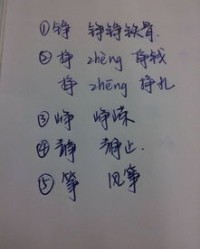 ① 铮 铮铮铁骨.
② 挣 zhèng 挣钱
挣 zhēng 挣扎
③ 峥 峥嵘
④ 静 静止.
⑤ 筝 风筝